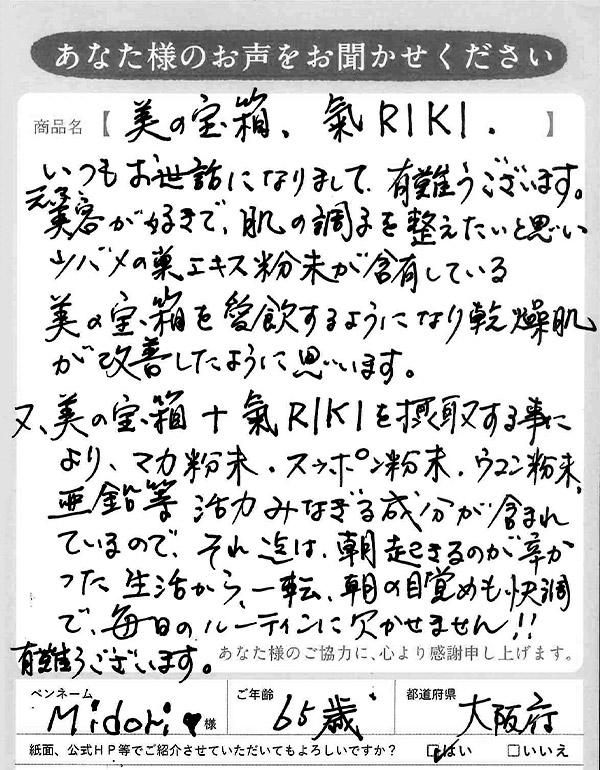 あなた様のお声をお聞かせください
商品名【 美の宝箱、氣RIKI. 】
いつもお世話になりまして、有難うございます。
元々
美容が好きで、肌の調子を整えたいと思い
ツバメの巣エキス粉末が含有している
美の宝箱を愛飲するようになり乾燥肌
が改善したように思います。
又、美の宝箱+氣RIKIを摂取する事に
より、マカ粉末・スッポン粉末・ウコン粉末、
亜鉛等活力みなぎる成分が含まれ
ているので、それ迄は、朝起きるのが辛か
った生活から、一転、朝の目覚めも快調
で、毎日のルーティンに欠かせません!!
有難うございます。
あなた様のご協力に、心より感謝申し上げます。
ペンネーム ご年齢 都道府県
Midori♥様 65歳 大阪府
紙面、公式HP等でご紹介させていただいてもよろしいですか? ☑はい □いいえ